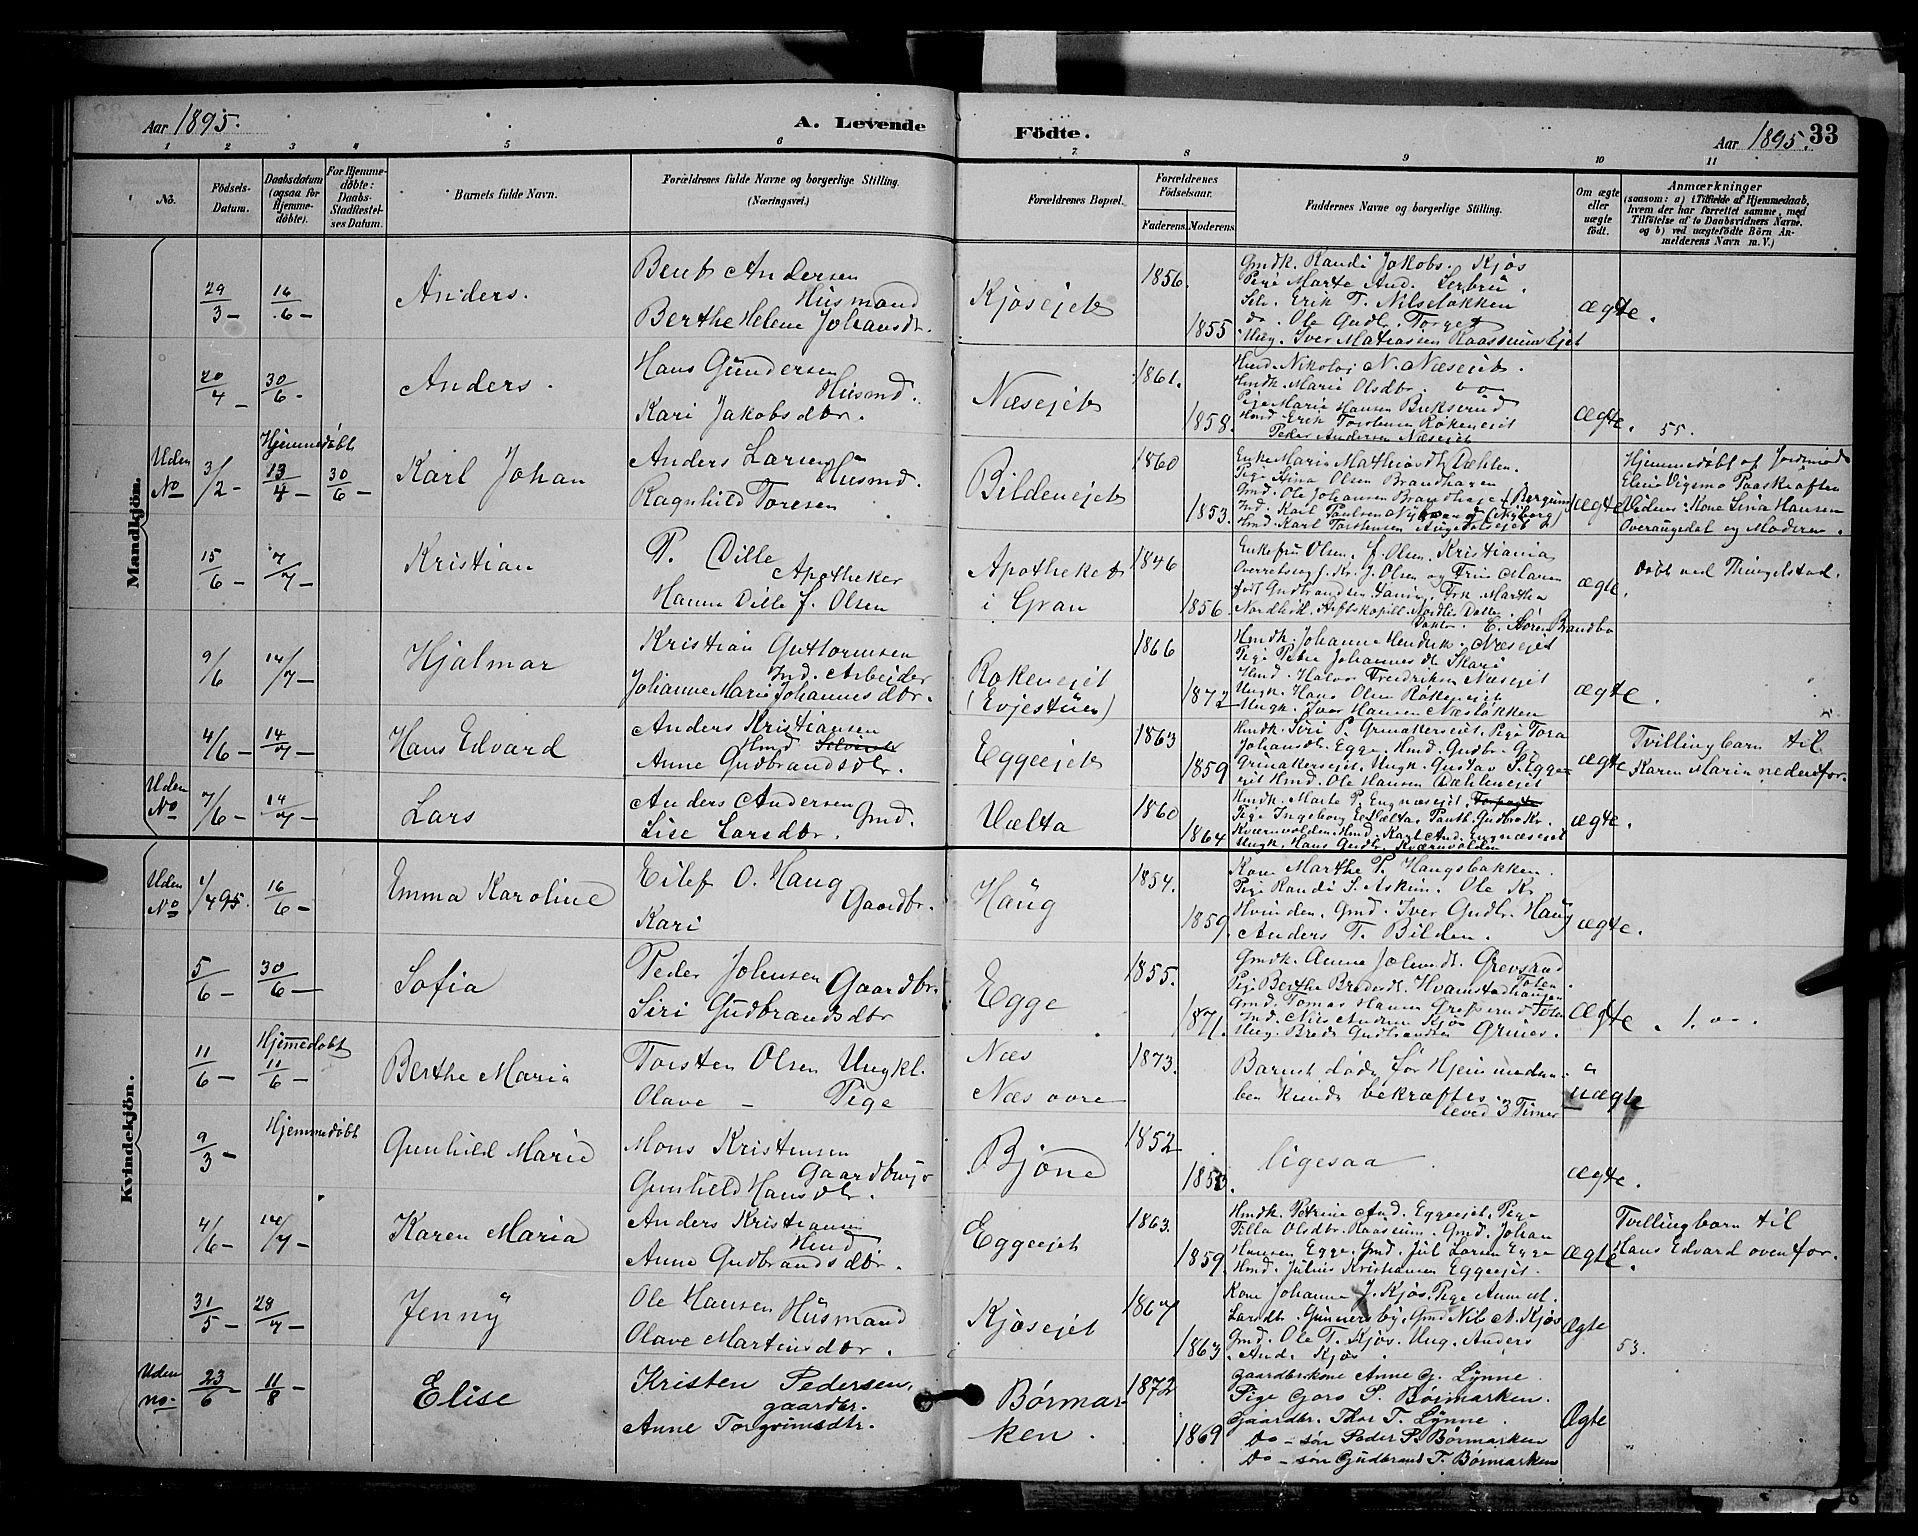 Aar 1895. A. Levende Födte. Aar 1895. 33
1 2 3 4 5 6 7 8 9 10 11
No.
Födsels-Datum.
Daabsdatum (ogsaa for Hjemmedöbte).
For Hjemmedöbte: Daabs-Stadfæstelses Datum.
Barnets fulde Navn.
Forældrenes fulde Navne og borgerlige Stilling. (Næringsvei.)
Forældrenes Bopæl.
Forældrenes Födselsaar.
Faderens. Moderens.
Faddernes Navne og borgerlige Stilling.
Om ægte eller uægte födt.
Anmærkninger
(saasom: a) i Tilfælde af Hjemmedaab,
hvem der har forrettet samme, med
Tilföielse af to Daabsvidners Navne,
og b) ved uægtefödte Börn Anmelderens Navn m. V.)
Mandkjön.
29/3 - 16/6 - Anders.
Bent Andersen
Husmand
Berthe Helene Johansdr.
Kjøseiet
1856.
1855
Gmdk. Randi Jakobs. Kjøs
Pige Marte And.
Erik T. Nilseløkken
do. Ole Gudbr. Torget
Ung. Iver Matiassen Raassumeiet
ægte.
20/4 - 30/6 - Anders.
Hans Gundersen
Husmd.
Kari Jakobsdtr.
Næseiet
1861.
1858.
Hmd. Nikolai N. Næseiet.
Hmdk. Marie Olsdtr. do
Pige Marie Hansen Bukserud
Hmd. Erik Torstensen Røkeneiet
Peder Andersen Næseiet
ægte. 55.
Uden No 3/2 - Hjemmedøbt 13/4 - 30/6 - Karl Johan
Anders Larsen
Husmd.
Ragnhild Toresen
Bildeneiet
1860
1853.
Enke Maria Mathiasdt. Dæhlen.
Pige Stina Olsen Brandhagen
Gmd. Ole Johansen Brandhage (Bergum)
Ind. Karl Paulsen
Hmd. Karl Torstensen
ægte
Hjemmedøbt af Jordmod.
Vidner: Kone Lina Hansen
Overaugedal og Moderen.
15/6 - 7/7 - Kristian
P. Dille
Apotheker
Hanna Dille f. Olsen
Apotheket
i Gran
1846
1856.
Enkefru Olsen. f. Olsen. Kristiania
Overretssag f. Kr. J. Olsen og Frue Maren
ægte.
Døbt ved Thingelstad.
9/6 14/7 - Hjalmar
Kristian Guttormsen
Ind. Arbeider
Johanne Marie Johannesdtr.
Rokeneiet
(Evjestuen)
1866
1872
Hmdk. Johanne Hendrik. Næseiet
Pige Petra Johannesdt. Skari
Hmd. Halvor Fredriksen Næseiet
Ungk. Hans Olsen Røkeneiet
Ungk. Iver Hansen Næsløkken
ægte.
4/6 - 14/7 - Hans Edvard
Anders Kristiansen
Hmd
Anne Gudbrandsdtr.
Eggeeiet
1863
1859
Hmdk. Siri P. Grinakerseiet. Pige Tora
Johansdt. Egge. Hmd. Gudbr. G.
Grinakerseiet. Ungk. Gustav S. Eggeeiet
Hmd. Ole Hansen Dæhleneiet
ægte
Tvillingbarn til
Karen Maria nedenfor.
Uden No 7/6 - 14/7 - Lars
Anders Andersen
Gmd.
Lise Larsdtr.
Velta
1860
1864
Hmdk. Marte P. Engnæseiet.
Kværnvolden. Hmd. Karl And. Engnæseiet
Ungk. Hans Gudbr. Kværnvolden
ægte.
Kvindekjön.
Uden No 1/4 95. 16/6 - Emma Karoline
Eilef O. Haug
Gaardbr.
Kari
Haug
1854.
1859.
Kone Marthe P. Haugsbakken.
Pige Randi S. Askim. Ole K.
Hvinden. Gmd. Iver Gudbr. Haug
Anders T. Bilden.
ægte.
5/6 - 30/6 - Sofia
Peder Johnsen Gaardbr.
Siri Gudbrandsdtr
Egge.
1855.
1871.
Gmdk. Anne Johnsdt. Grevsrud
Toten.
Ind. Nils Andersen Kjøs
Ung. Brede Gudbrandsen Grina.
ægte.
11/6 - Hjemmedøbt 11/6 - Berthe Maria
Torsten Olsen Ungkl.
Olave - Pige
Næs
Næs øvre
1873.
Barnet døde før Hjemmedaaben
kunde bekræftes.
leved 3 Timer
uægte
9/3 - Hjemmedøbt Gunhild Marie
Mons Kristensen
Gaardbruger
Gunhild Hansdtr.
Bjone
1852
1853.
ligesaa.
ægte.
4/6 - 14/7 - Karen Maria
Anders Kristiansen
Hmd
Anne Gudbrandsdtr.
Eggeeiet
1863.
1859.
Hmdk. Petrine And. Eggeeiet. Pige
Tilla Olsdtr. Raassum. Gmd. Johan
Hansen Egge. Gmd. Jul. Larsen Egge
Hmd. Julius Kristiansen Eggeeiet.
Ægte.
Tvillingbarn til
Hans Edvard ovenfor.
31/5 - 28/7 - Jenny
Ole Hansen Husmand
Olave Martinsdtr.
Kjøseiet
1867
1863
Kone Johanne J. Kjøs. Pige Anne M.
Larsdtr. Gunnersby. Gmd Nils A. Kjøs
Gmd. Ole T. Kjøs. Ung. Anders
And. Kjøs.
Ægte
53.
Uden no. 23/6 - 11/8 - Elise
Kristen Pedersen,
gaardbr.
Anne Torgrimsdtr.
Børmarken.
1872
1869
Gaardbr.kone Anne G. Lynne.
Pige Goro P. Børmarken.
Gaardbr. Thor T. Lynne.
Do - søn Peder P. Børmarken
Do - søn Gudbrand T. Børmarken
Ægte